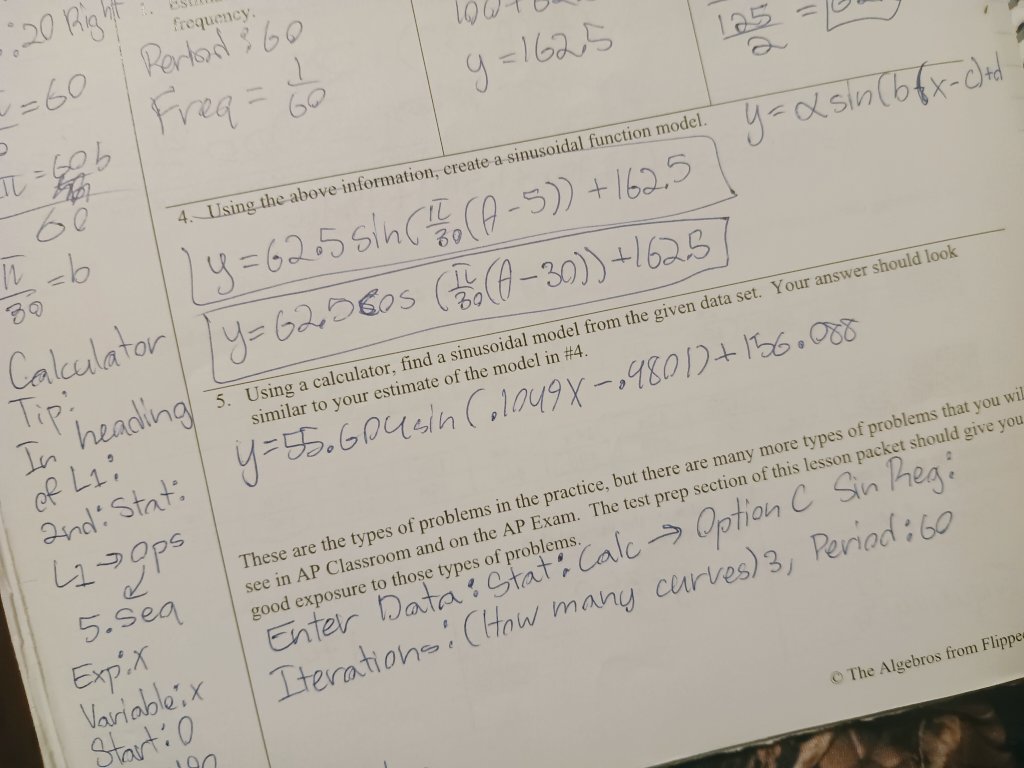 :20 Right
frequency.
Period: 60
Freq = 1/60
y=162.5
125/2 =
=60
π = 60b
60
π/30 = b
Calculator
Tip:
In heading
of L1:
2nd: Stat:
L1 → Ops
5. seq
Exp: x
Variable: x
Start: 0
y = a sin(b(x-c)+d
4. Using the above information, create a sinusoidal function model.
y=62.5 sin(π/30(θ-5)) +162.5
y=62.5 cos (π/30(θ-30))+162.5
5. Using a calculator, find a sinusoidal model from the given data set. Your answer should look
similar to your estimate of the model in #4.
y=55.604sin(.1049x-.9801)+156.088
These are the types of problems in the practice, but there are many more types of problems that you wil
see in AP Classroom and on the AP Exam. The test prep section of this lesson packet should give you
good exposure to those types of problems.
Enter Data: Stat: Calc → Option C Sin Reg:
Iterations: (How many curves) 3, Period: 60
© The Algebros from Flippe